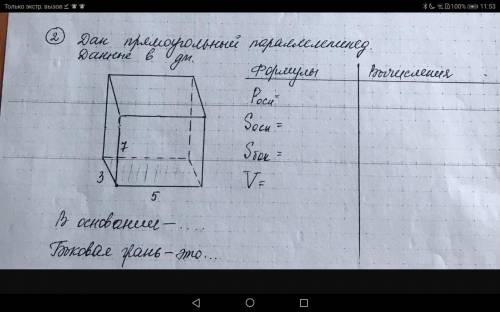 Только экстр. вызов
100%
11:53
② Дан прямоугольный параллелепипед.
Данные в дм.
Формулы
Вычисления
Pосн=
Sосн=
Sбок=
V=
7
3
5
В основании – ....
Боковая грань – это...